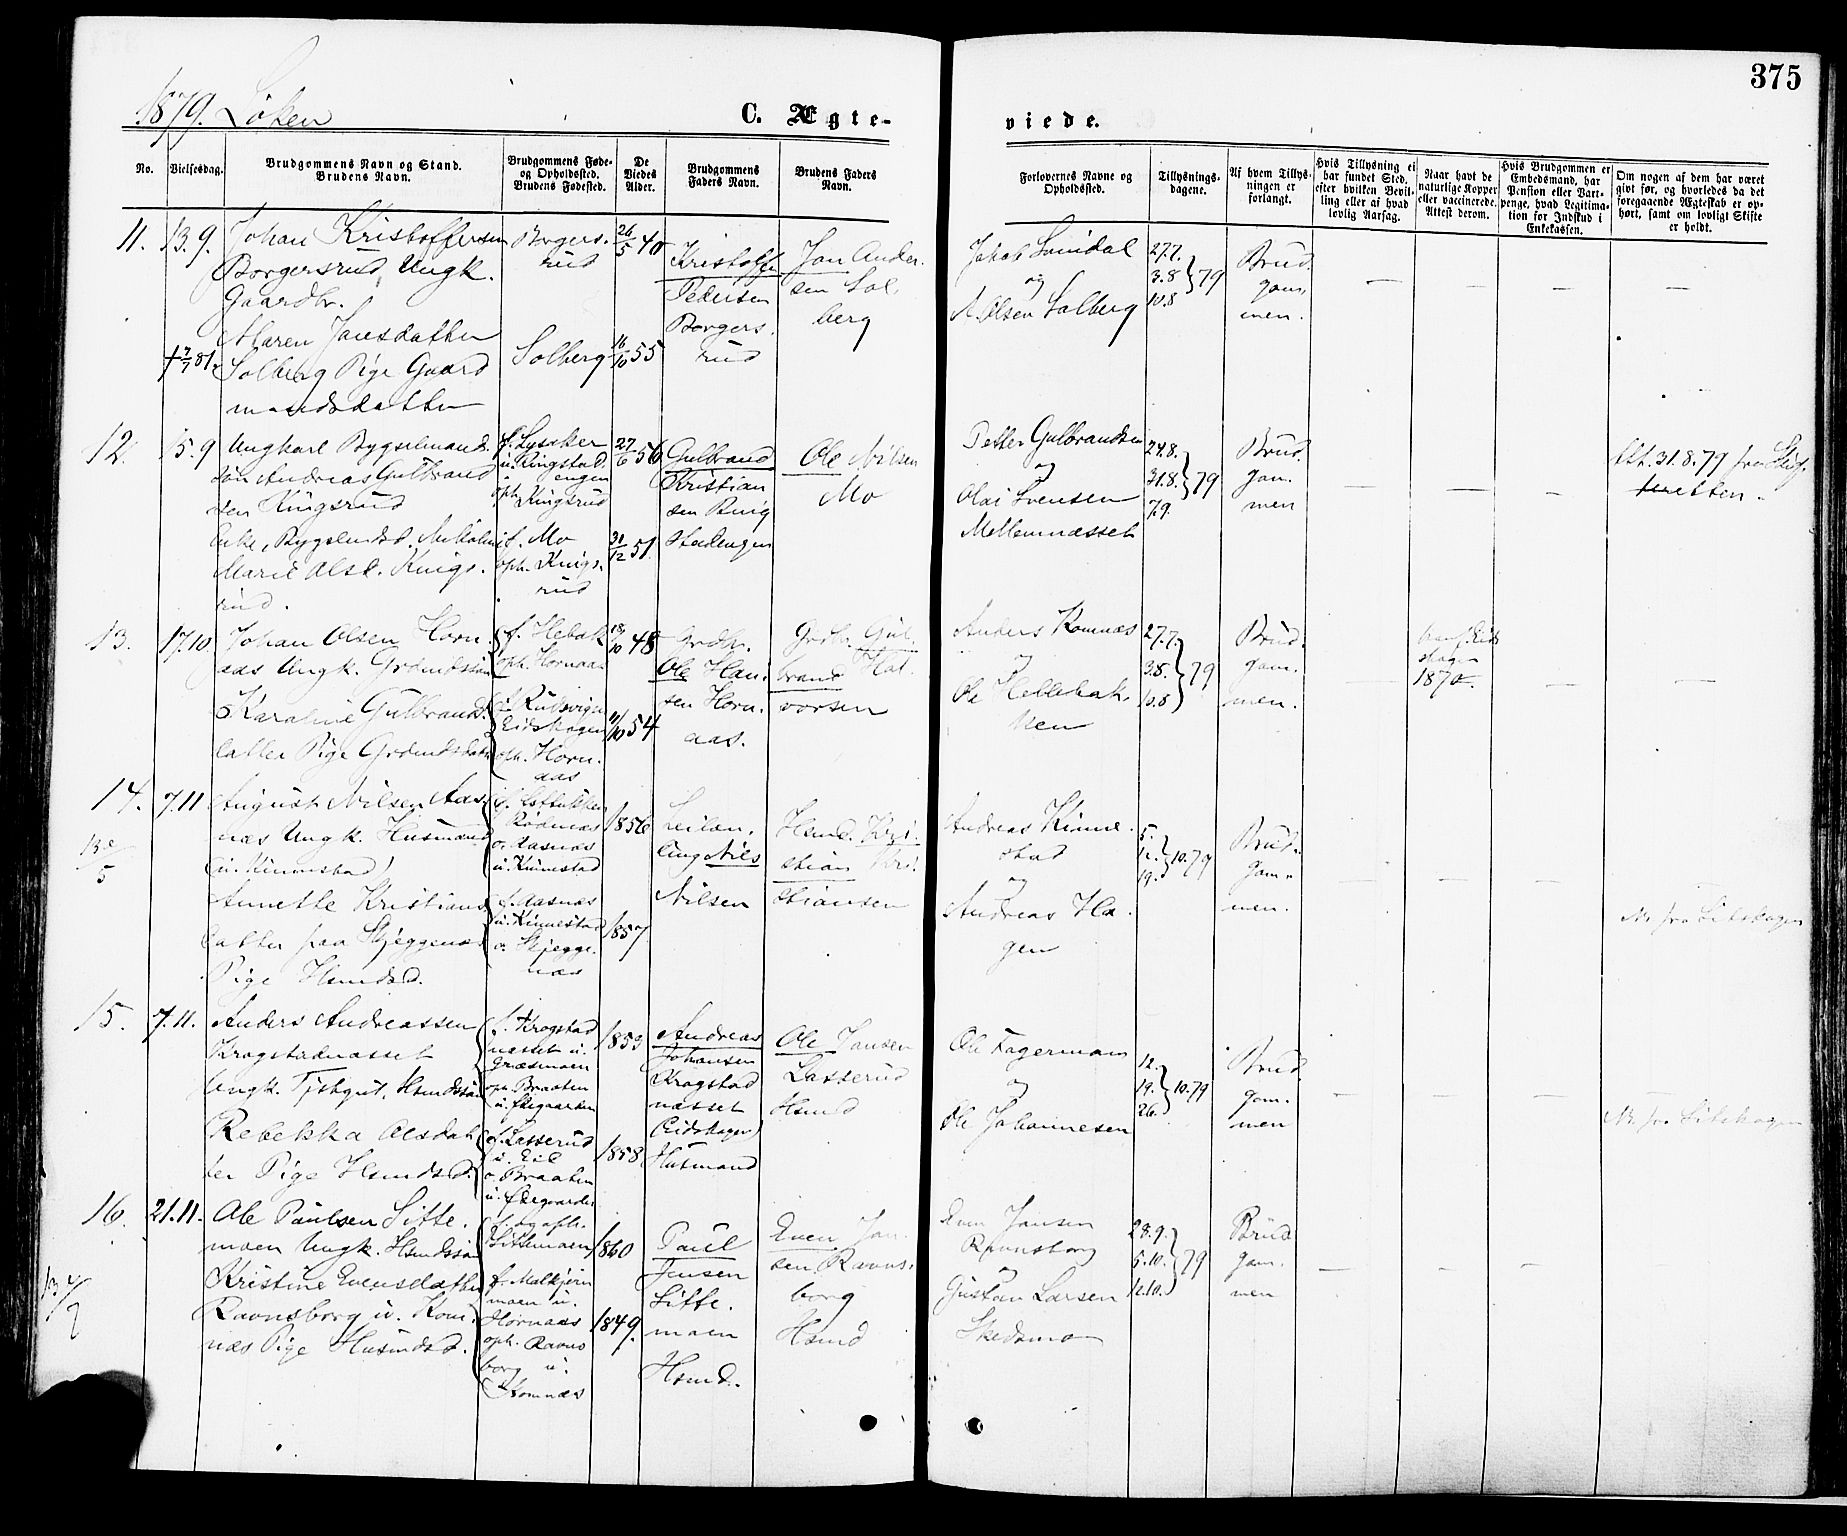 375
1879. Löken
C. Ægte-
viede.
No.
Vielsesdag.
Brudgommens Navn og Stand.
Brudens Navn.
Brudgommens Føde-
og Opholdssted.
Brudens Fødested.
De
Viedes
Alder.
Brudgommens
Faders Navn.
Brudens Faders
Navn.
Forlovernes Navne og
Opholdssted.
Tillysnings-
dagene.
Af hvem Tillys-
ningen er
forlangt.
Hvis Tillysning ei
har fundet Sted,
efter hvilken Bevil-
ling eller af hvad
lovlig Aarsag.
Naar havt de
naturlige Kopper
eller vaccinerede.
Attest derom.
Hvis Brudgommen er
Embedsmand, har
Pension eller Vart-
penge, hvad Legitima-
tion for Indskud i
Enkekassen.
Om nogen af dem har været
givt før, og hvorledes da det
foregaaende Ægteskab er op-
hørt, samt om lovligt Skifte
er holdt.
11.
13.9.
Johan Kristoffersen
Borgersrud, Ungk.
Gaardbr.
Maren Jansdatter
†7/7 81.
Solberg Pige Gaard
mandsdatter
Borgers.
rud
Solberg
26/5 40
16/10 55
Kristoffer
Pedersen
Borgers.
rud
Jan Ander.
sen Sol.
berg
og
A. Olsen Solberg
27.7.
3.8 } 79
10.8
Brud.
gom.
men.
12.
15.9
Ungkarl Bygselmands
søn Andreas Gulbrand
sen Kingsrud
Marie Olsd. Kings.
rud.
f. Lysaker
u. Ringstad.
engen
oph. Kingsrud
f. Mo
oph. Kings.
rud
27/6 56
31/12 51.
Gulbrand
Kristian
sen Ring
stadengen
Ole Nilsen
Mo
Petter Gulbrandsen
og
Olai Svensen
Mellemnæsset
24.8.
31.8. } 79
7.9.
Brud.
gom.
men
Att. 31.8.79 fra Skif.
teretten.
13.
17.10
Johan Olsen Horn.
aas Ungk. Grdmdssøn
Karoline Gulbrands.
datter Pige Grdmdsdatter
oph. Hornaas
Eidskogen
oph. Horn.
aas
18/10 48
11/10 54
Grdbr.
Ole Han.
sen Horn.
aas.
Grdbr. Gul.
brand Hal.
vorsen
Anders Komnæs
og
Ole Hellebak.
ken
27.7.
3.8. } 79
10.8
Brud.
gom.
men.
1870.
14.
7.11
August Nilsen Aas.
næs Ungk. Husmand
(u. Kinnestad)
Annette Kristians
datter paa Skjeggenæs
Pige Hsmdsd.
o. Aasnæs
u. Kinnestad
f. Aasnæs
u. Kinnestad
o. Skjegge.
næs
1856
1857
Leilæn.
ding Nils
Nilsen
Hsmd. Kri.
stian Kri.
stiansen
Andreas Kinne.
stad
og
Andreas Ha.
gen
5.
12. } 10.79
19.
Brud.
gom.
men.
15.
7.11.
Anders Andreassen
Kragstadnæsset
Ungk. Tjskgut, Hsmdssøn
Rebekka Olsdat.
ter Pige Hsmdsd.
f. Kragstad
næsset u.
Græsmoen
oph. Braaten
f. Lasserud
u. Eid
o. Braaten
1853
1858
Andreas
Johansen
Kragstad
næsset
(Eidskogen)
Husmand
Ole Jansen
Lasserud
Hsmd
Ole Fagermoen
og
Ole Johannesen
12.
19. } 10.79
26.
Brud.
gom.
men
16.
21.11.
Ole Paulsen Sitte.
moen Ungk. Hsmdssøn
Kristine Evensdatter
Ravnsborg u. Kom.
næs Pige Husmdsd.
Sittemoen
moen u.
Hornaas
oph. Ravns
borg u.
Komnæs
1860
1849.
Paul
Jensen
Sitte.
moen
Hsmd.
Even Jan
sen Ravns.
borg
Hsmd
Even Jansen
Ravnsborg
og
Gustav Larsen
Skedsmo
28.9.
5.10. } 79
12.10.
Brud
gom.
men